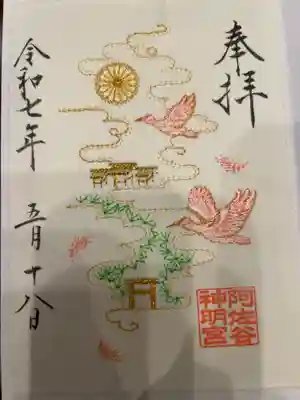 奉拝
阿佐谷
神明宮
令和七年 五月十八日